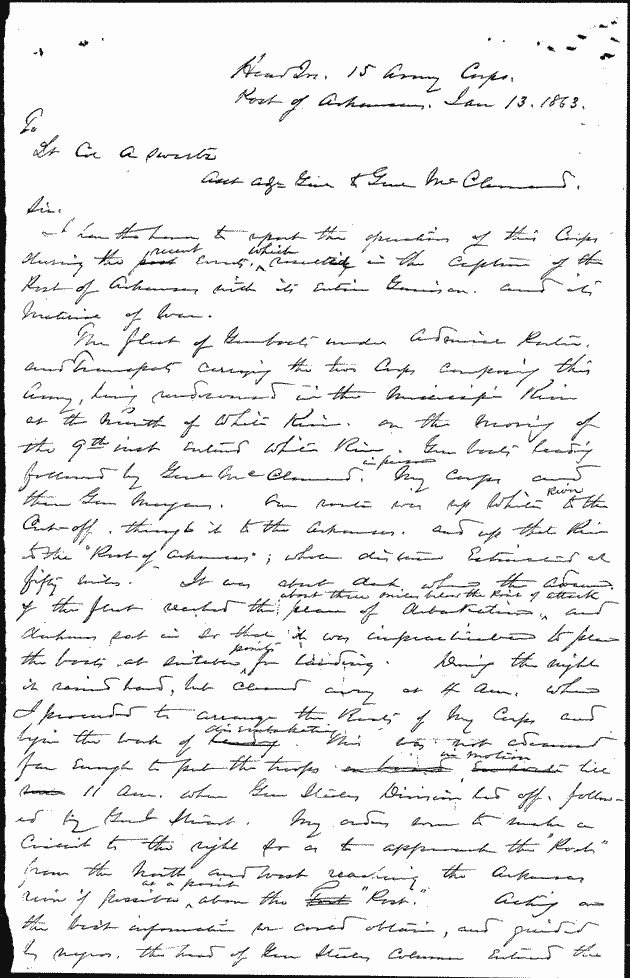 Head Qrs. 15 Army Corps.
Post of Arkansas. Jan 13. 1863.
To
Lt Col A Swartz
Asst adj Genl to Genl McClernand.
Sir.
I have the honor to report the operations of this Corps
during the past recent events, which resulted in the Capture of the
Post of Arkansas with its entire Garrison. and its
Material of War.
The fleet of Gunboats under Admiral Porter.
and Transports carrying the two Corps composing this
Army, being rendezvoused in the Mississippi River
at the Mouth of White River. on the Morning of
the 9th inst entered White River. Gun boats leading
followed by Genl McClernand. in person My Corps and
then Gen Morgans. Our route was up White River to the
Cut-off. through it to the Arkansas. and up that River
to the "Post of Arkansas"; whole distance Estimated at
fifty miles. It was about dark when the advance
of the fleet reached the place of debarkation, about three miles below the Point of attack and
darkness set in so that it was impracticable to place
the boats at suitable points for landing. During the night
it rained hard, but cleared away at 4 Am. when
I proceeded to arrange the Boats of My Corps and
begin the work of landing disembarking. This was not advanced
far enough to put the troops on board in motion till
11 Am. when Gen Steeles Division led off. follow-
ed by Genl Stuart. My orders were to make a
Circuit to the right so as to approach the "Post"
from the North and West reaching the Arkansas
river if possible at a point above the Post "Post." Acting on
the best information we could obtain, and guided
by negros. the head of Gen Steeles Column entered the